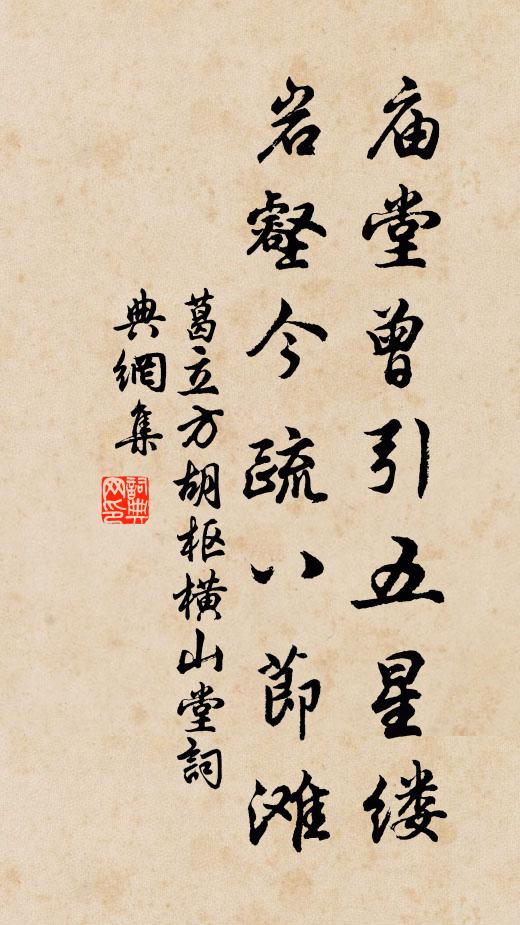 庙堂曾引五星缕
岩壑今疏八節滩
葛立方胡枢橫山堂詞
典網集
詞典网印